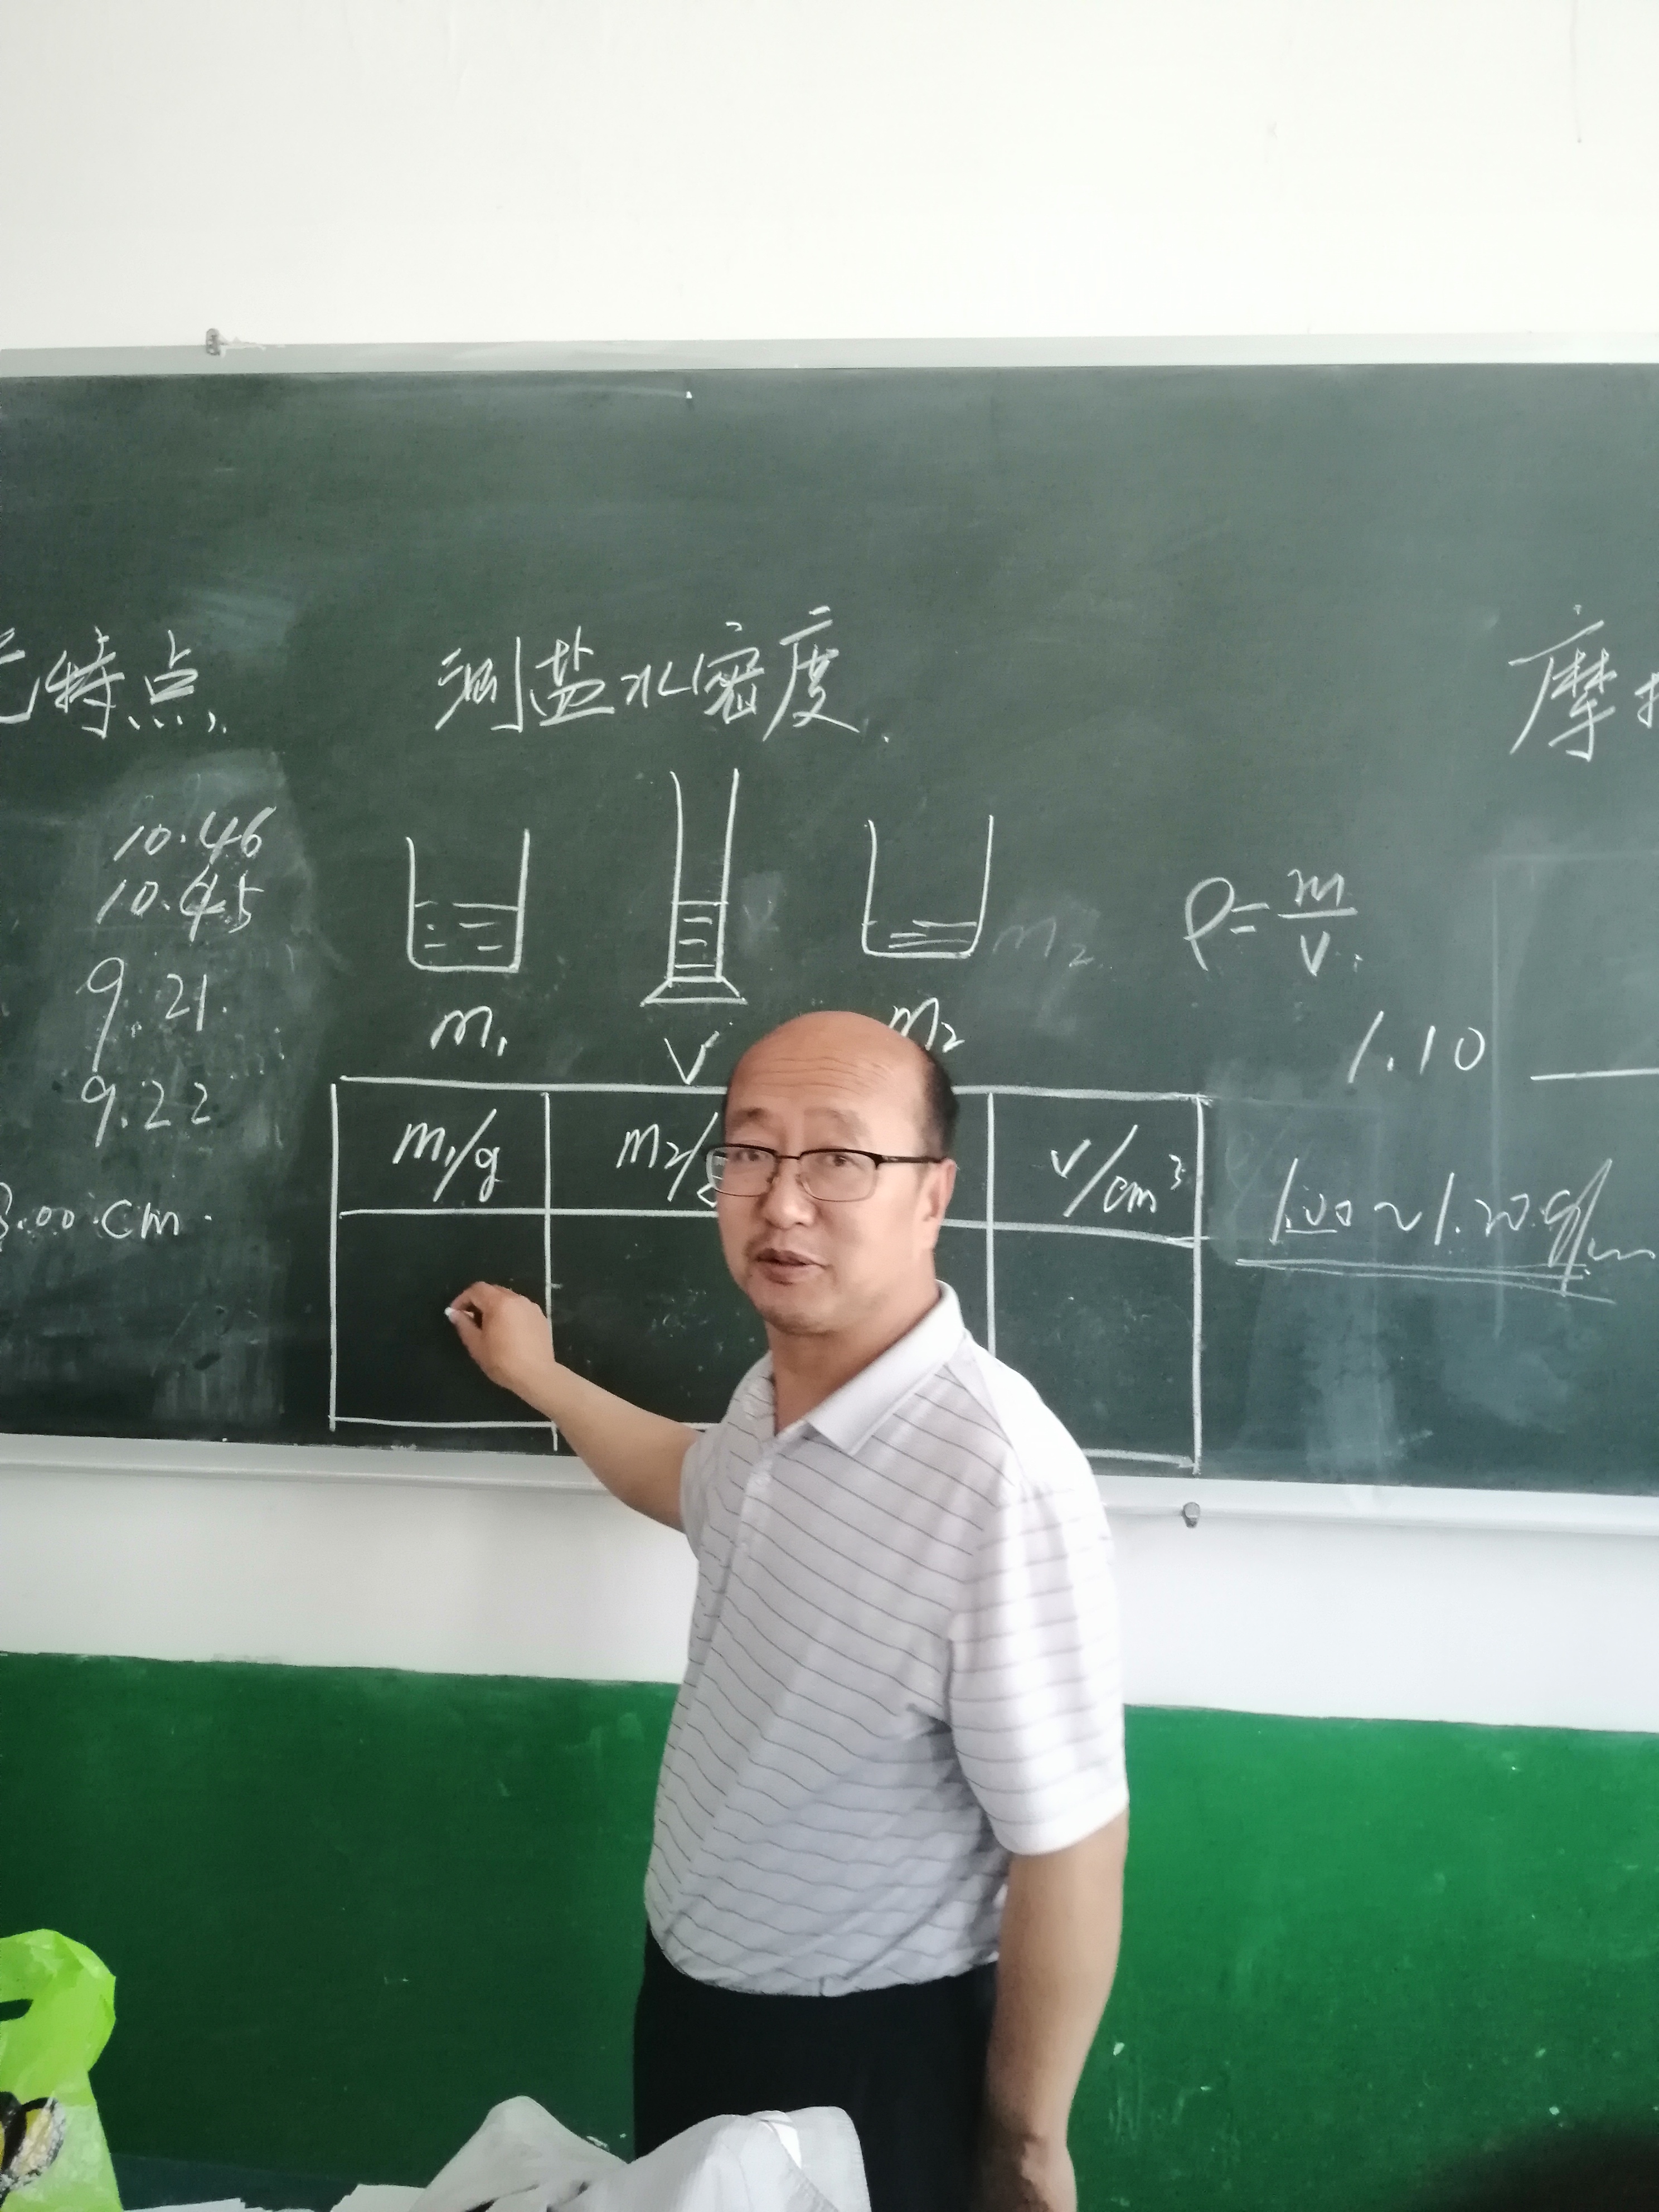 特点.
10.46
10.45
9.21.
9.22
.00 cm.
测盐水密度.
m₁
V
m₂
m₂
m₁/g
m₂/
V/cm³
ρ=m/V.
1.10
1.00~1.20 g/
摩